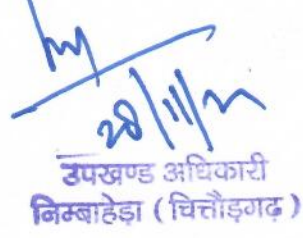 उपखण्ड अधिकारी
निम्बाहेड़ा ( चित्तौड़गढ़ )